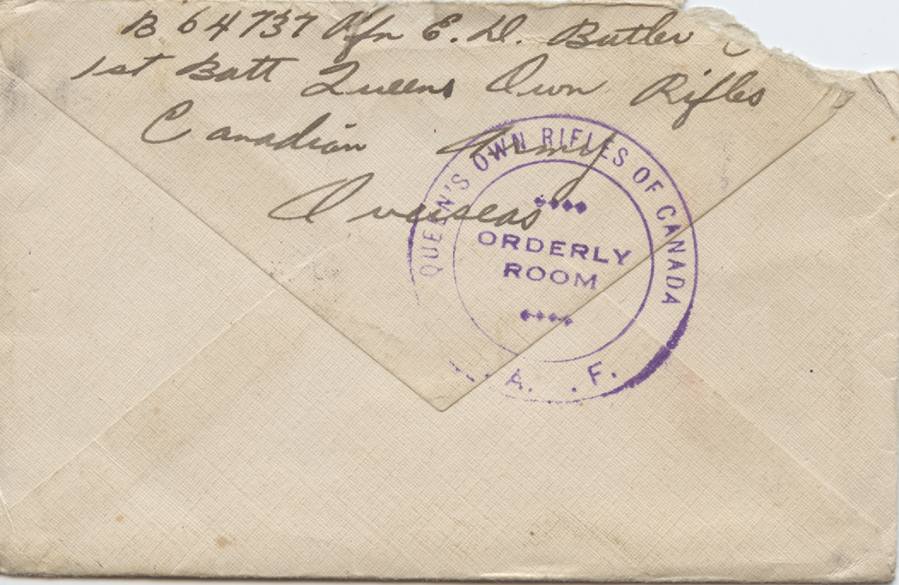 B 64737 Rfn E. D. Butler
1st Batt Queens Own Rifles
Canadian Army
Overseas
QUEEN'S OWN RIFLES OF CANADA
ORDERLY
ROOM
A. .F.